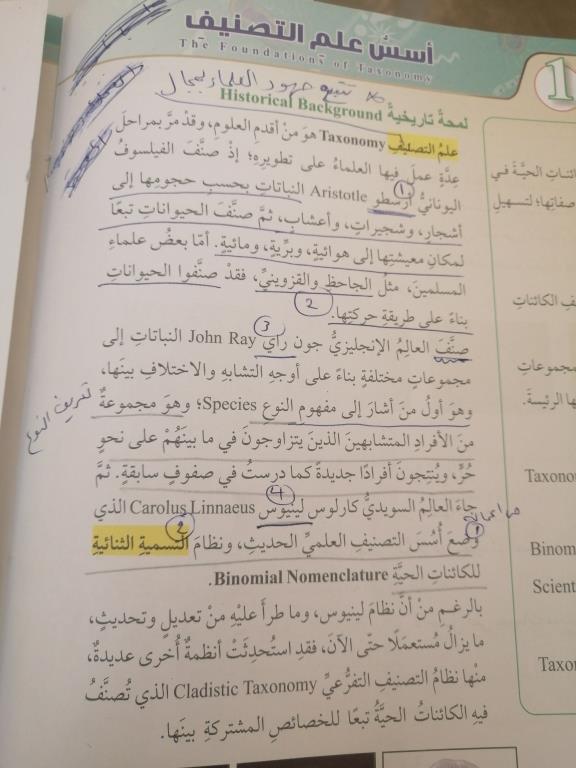 أسسُ علم التصنيف
The Foundations of Taxonomy
1
تتبع جهود العلماء لمجال
لمحةٌ تاريخيةٌ Historical Background
علمُ التصنيفِ Taxonomy هوَ منْ أقدمِ العلومِ، وقدْ مرَّ بمراحلَ
عدَّةٍ عملَ فيها العلماءُ على تطويرِهِ؛ إذْ صنَّفَ الفيلسوفُ
1
اليونانيُّ أرسطو Aristotle النباتاتِ بحسبِ حجومِها إلى
أشجارٍ، وشجيراتٍ، وأعشابٍ، ثمَّ صنَّفَ الحيواناتِ تبعًا
لمكانِ معيشتِها إلى هوائيةٍ، وبرِّيةٍ، ومائيةٍ. أمّا بعضُ علماءِ
المسلمينَ، مثلُ الجاحظِ والقزوينيِّ، فقدْ صنَّفوا الحيواناتِ
بناءً على طريقةِ حركتِها.
2
3
صنَّفَ العالِمُ الإنجليزيُّ جون راي John Ray النباتاتِ إلى
مجموعاتٍ مختلفةٍ بناءً على أوجهِ التشابهِ والاختلافِ بينَها،
وهوَ أولُ منْ أشارَ إلى مفهومِ النوعِ Species؛ وهوَ مجموعةٌ
تعريف النوع
منَ الأفرادِ المتشابهينَ الذينَ يتزاوجونَ في ما بينَهُمْ على نحوٍ
حُرٍّ، ويُنتِجونَ أفرادًا جديدةً كما درستُ في صفوفٍ سابقةٍ. ثمَّ
4
جاءَ العالِمُ السويديُّ كارلوس لينيوس Carolus Linnaeus الذي
1
2
وضعَ أُسُسَ التصنيفِ العلميِّ الحديثِ، ونظامَ التسميةِ الثنائيةِ
للكائناتِ الحيَّةِ Binomial Nomenclature.
بالرغمِ منْ أنَّ نظامَ لينيوس، وما طرأَ عليْهِ منْ تعديلٍ وتحديثٍ،
ما يزالُ مُستعمَلًا حتّى الآنَ، فقدِ استُحدِثَتْ أنظمةٌ أُخرى عديدةٌ،
منْها نظامُ التصنيفِ التفرُّعيِّ Cladistic Taxonomy الذي تُصنَّفُ
فيهِ الكائناتُ الحيَّةُ تبعًا للخصائصِ المشتركةِ بينَها.
صفاتِها؛ لتسهيلِ
الكائناتِ
مجموعاتٍ
الرئيسةَ.
Taxono
Binom
Scient
Taxon